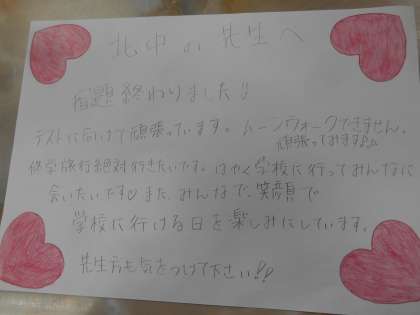 北中の先生へ
宿題終わりました!!
テストに向けて頑張っています。ムーンウォークできません。
頑張ってみます♪
修学旅行絶対行きたいです。はやく学校に行ってみんなに
会いたいです♡また、みんなで、笑顔で
学校に行ける日を楽しみにしています。
先生方も気をつけて下さい!!